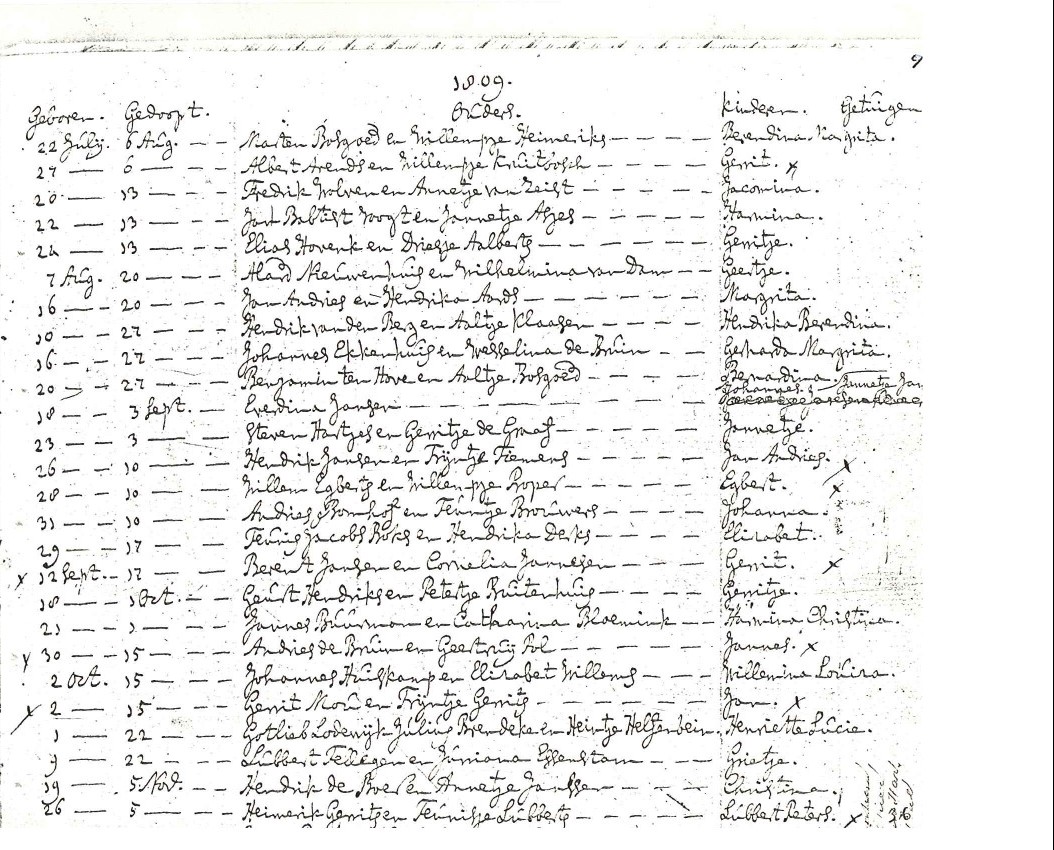 9
1809.
Geboren. Gedoopt. Ouders. Kinderen. Getuigen
22 July. 6 Aug. — — Marten Bosgoed en Willempje Heimeriks — — — — Berendina Margrita.
27 — 6 — — — Albert Arends en Willempje Kruitbosch — — — — Gerrit. x
20 — 13 — — — Fredrik Wolven en Annetje van Zeist — — — — Jacomina.
22 — 13 — — — Jan Babtist Voogt en Jannetje Asjes — — — — Harmina.
24 — 13 — — — Elias Hovenk en Driesje Aalberts — — — — Gerritje.
7 Aug. 20 — — — Alard Nieuwenhuis en Wilhelmina van Dam — — Geertje.
16 — 20 — — — Jan Andries en Hendrika Aards — — — — Margrita.
10 — 27 — — — Hendrik van den Berg en Aaltje Klaasen — — — — Hendrika Berendina.
16 — 27 — — — Johannes Ekkenhuis en Wesselina de Bruin — — Gerharda Margrita.
20 — 27 — — — Benjamin ten Hove en Aaltje Bosgoed — — — — Bernardina.
18 — 3 Sept. — Everdina Jansen — — — — Johannes. Jannetje Jan
23 — 3 — — — Steven Hartjes en Gerritje de Graaf — — — — Jannetje.
26 — 10 — — — Hendrik Jansen en Fijntje Tiemens — — — — Jan Andries. x
28 — 10 — — — Willem Egberts en Willempje Roper — — — — Egbert. x
31 — 10 — — — Andries Bomhof en Teuntje Brouwers — — — — Johanna.
29 — 17 — — — Teunis Jacobs Boks en Hendrika Derks — — — — Elisabet.
x 12 Sept. — 17 — — — Berent Jansen en Cornelia Jannesen — — — — Gerrit. x
18 — 1 Oct. — — Geurt Hendriksen Petertje Buitenhuis — — — — Gerritje.
21 — 1 — — — Jannes Buurman en Catharina Bloemink — — Harmina Christina.
y 30 — 15 — — — Andries de Bruin en Geertruy Pol — — — — Jannes. x
2 Oct. 15 — — — Johannes Huiskamp en Elisabet Willems — — — Willemina Louisa.
x 2 — 15 — — — Gerrit Mou en Fijntje Gerrits — — — — Jan. x
1 — 22 — — — Gotlieb Lodewijk Julius Brendeke en Heintje Helfenbein. Henriette Lucie.
9 — 22 — — — Lubbert Tellegen en Jurriana Essenstam — — — Grietje.
19 — 5 Nov. — — Hendrik de Boer en Annetje Janssen — — — — Christina.
26 — 5 — — — Heimerik Gerritsen Teunisje Lubberts — — — — Lubbert Peters. x